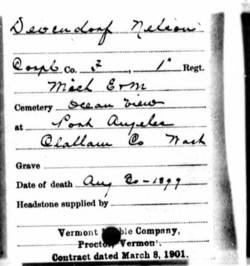 Devendorf Nelson
Corpl Co. F, 1" Regt.
Mich E & M
Cemetery Ocean View
at Port Angeles
Clallam Co Wash
Grave
Date of death Aug 20-1899
Headstone supplied by
Vermont Company,
Proctor, Vermont.
Contract dated March 8, 1901.